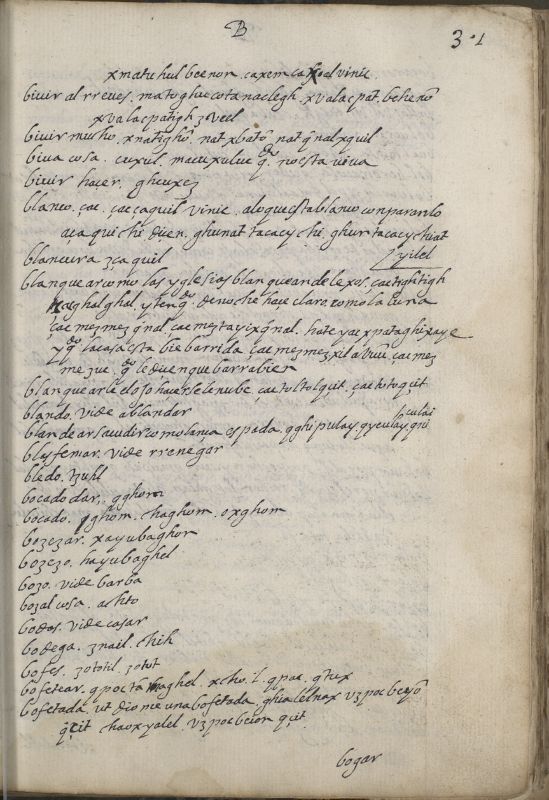 B
31
xmatuhul beenon. caxem ca xoal vinic.
biuir al rreues. matoghuecota naclegh. xvalacpat. beheno
xvalacpatigh zvecl
biuir mucho. xnatigho. nat xbato. nat qnal xquil
biua cosa. cuxul. macuxuluc q noesta viua
biuir hacer. ghcuxez
blanco. çac. çacçaquil vinic. aloque esta blanco conpararlo
aca qui chi dicen. ghunat tacacy chi. ghur tacacychiat
yilel
blancura zçaquil
blanquear como las yglesias blanquean de lexos. caetightigh
xaghalghel. y ten q. de noche haçe claro como la luna
çac mezmez qnal. çac meztayixqnal.
q la casa esta bie barrida. çac mezmez xil
mezue. q le dicen que barra bien
blanquear le el ojo hacerse le nube. çac toltolqçit. çactotoqçit
blando. vide ablandar
culai
blandear saudir como lança espada. qghipulay. qyculay. qui
blasfemar. vide rrenegar
bledo. tzuhl
bocado dar. qghom
bocado. qghom. chaghom. oxghom
bozezar. xayubaghon
bozezo. hayubaghel
bozo. vide barba
bozal cosa. achto
bodas. vide casar
bodega. znail. chih
bofes. zototil zotot
bofetear. qpocta naghel. xcho. l. qpac. qtux
bofetada. ut dio me una bofetada. ghialelnax vzpocbeyo
qçit chaoxyalel. vzpocbeion qçit.
bogar